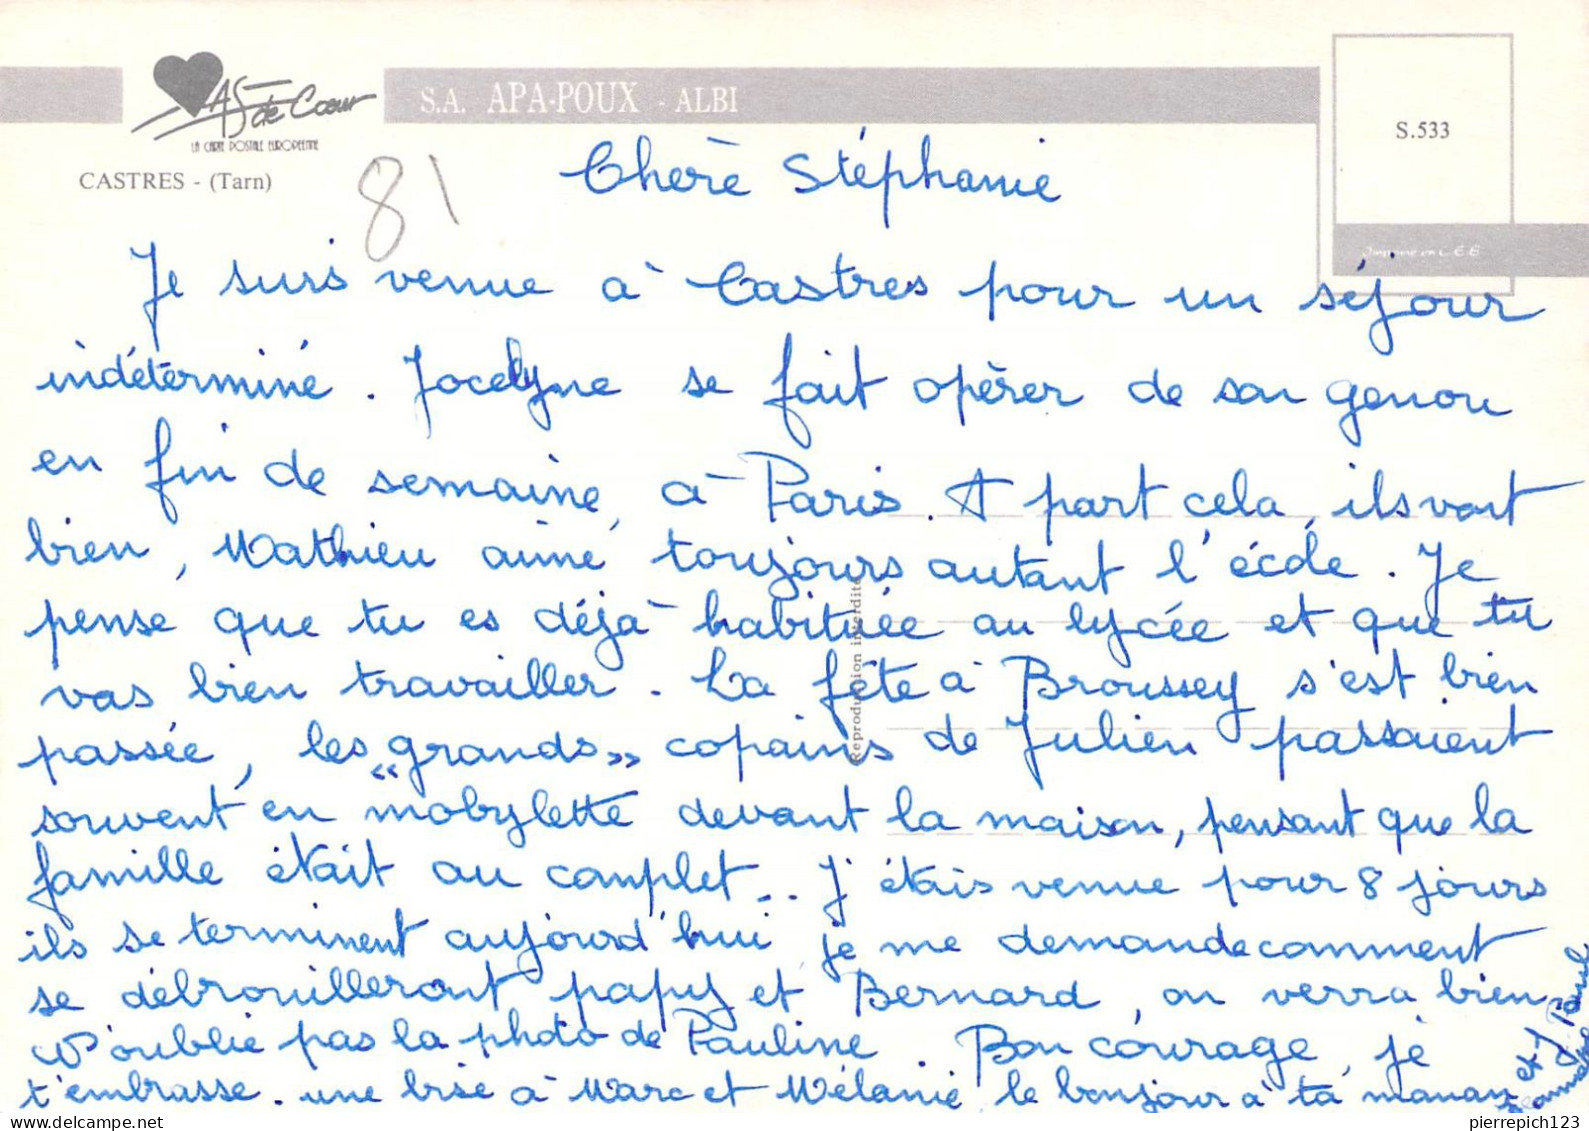 As de Cœur
LA CARTE POSTALE EUROPÉENNE
S.A. APA-POUX - ALBI
S.533
CASTRES - (Tarn)
81
Imprimé en C.E.E
Reproduction interdite
Chère Stéphanie
Je suis venue à Castres pour un séjour
indéterminé. Jocelyne se fait opérer de son genou
en fin de semaine, à Paris. A part cela, ils vont
bien, Mathieu aime toujours autant l'école. Je
pense que tu es déjà habituée au lycée et que tu
vas bien travailler. La fête à Broussey s'est bien
passée, les "grands" copains de Julien passaient
souvent en mobylette devant la maison, pensant que la
famille était au complet.. J'étais venue pour 8 jours
ils se terminent aujourd'hui je me demande comment
se débrouilleront papy et Bernard, on verra bien
N'oublie pas la photo de Pauline. Bon courage, je
t'embrasse. une bise à Marc et Mélanie le bonjour à ta maman
et J. Paul
pierrepich123